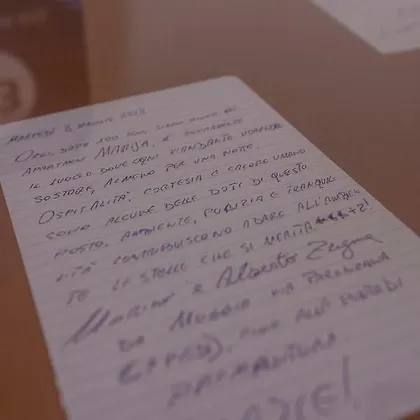 MARTEDÌ 8 MAGGIO
OGGI, DOPO 100 KM, SIAMO
APARTMENT MARIJA, È SICURAMENTE
IL LUOGO DOVE OGNI VIANDANTE VORREBBE
SOSTARE, ALMENO PER UNA NOTTE.
OSPITALITÀ, CORTESIA E CALORE UMANO
SONO ALCUNE DELLE DOTI DI QUESTO
POSTO, AMBIENTE, PULIZIA E TRANQUIL
LITÀ CONTRIBUISCONO A DARE ALL'
TE LE STELLE CHE SI MERITA +2!
E ALBERTO
DA MUGGIA VIA PARENZANA
FINO ALLA PUNTA DI
PROMONTORE.
GRAZIE!